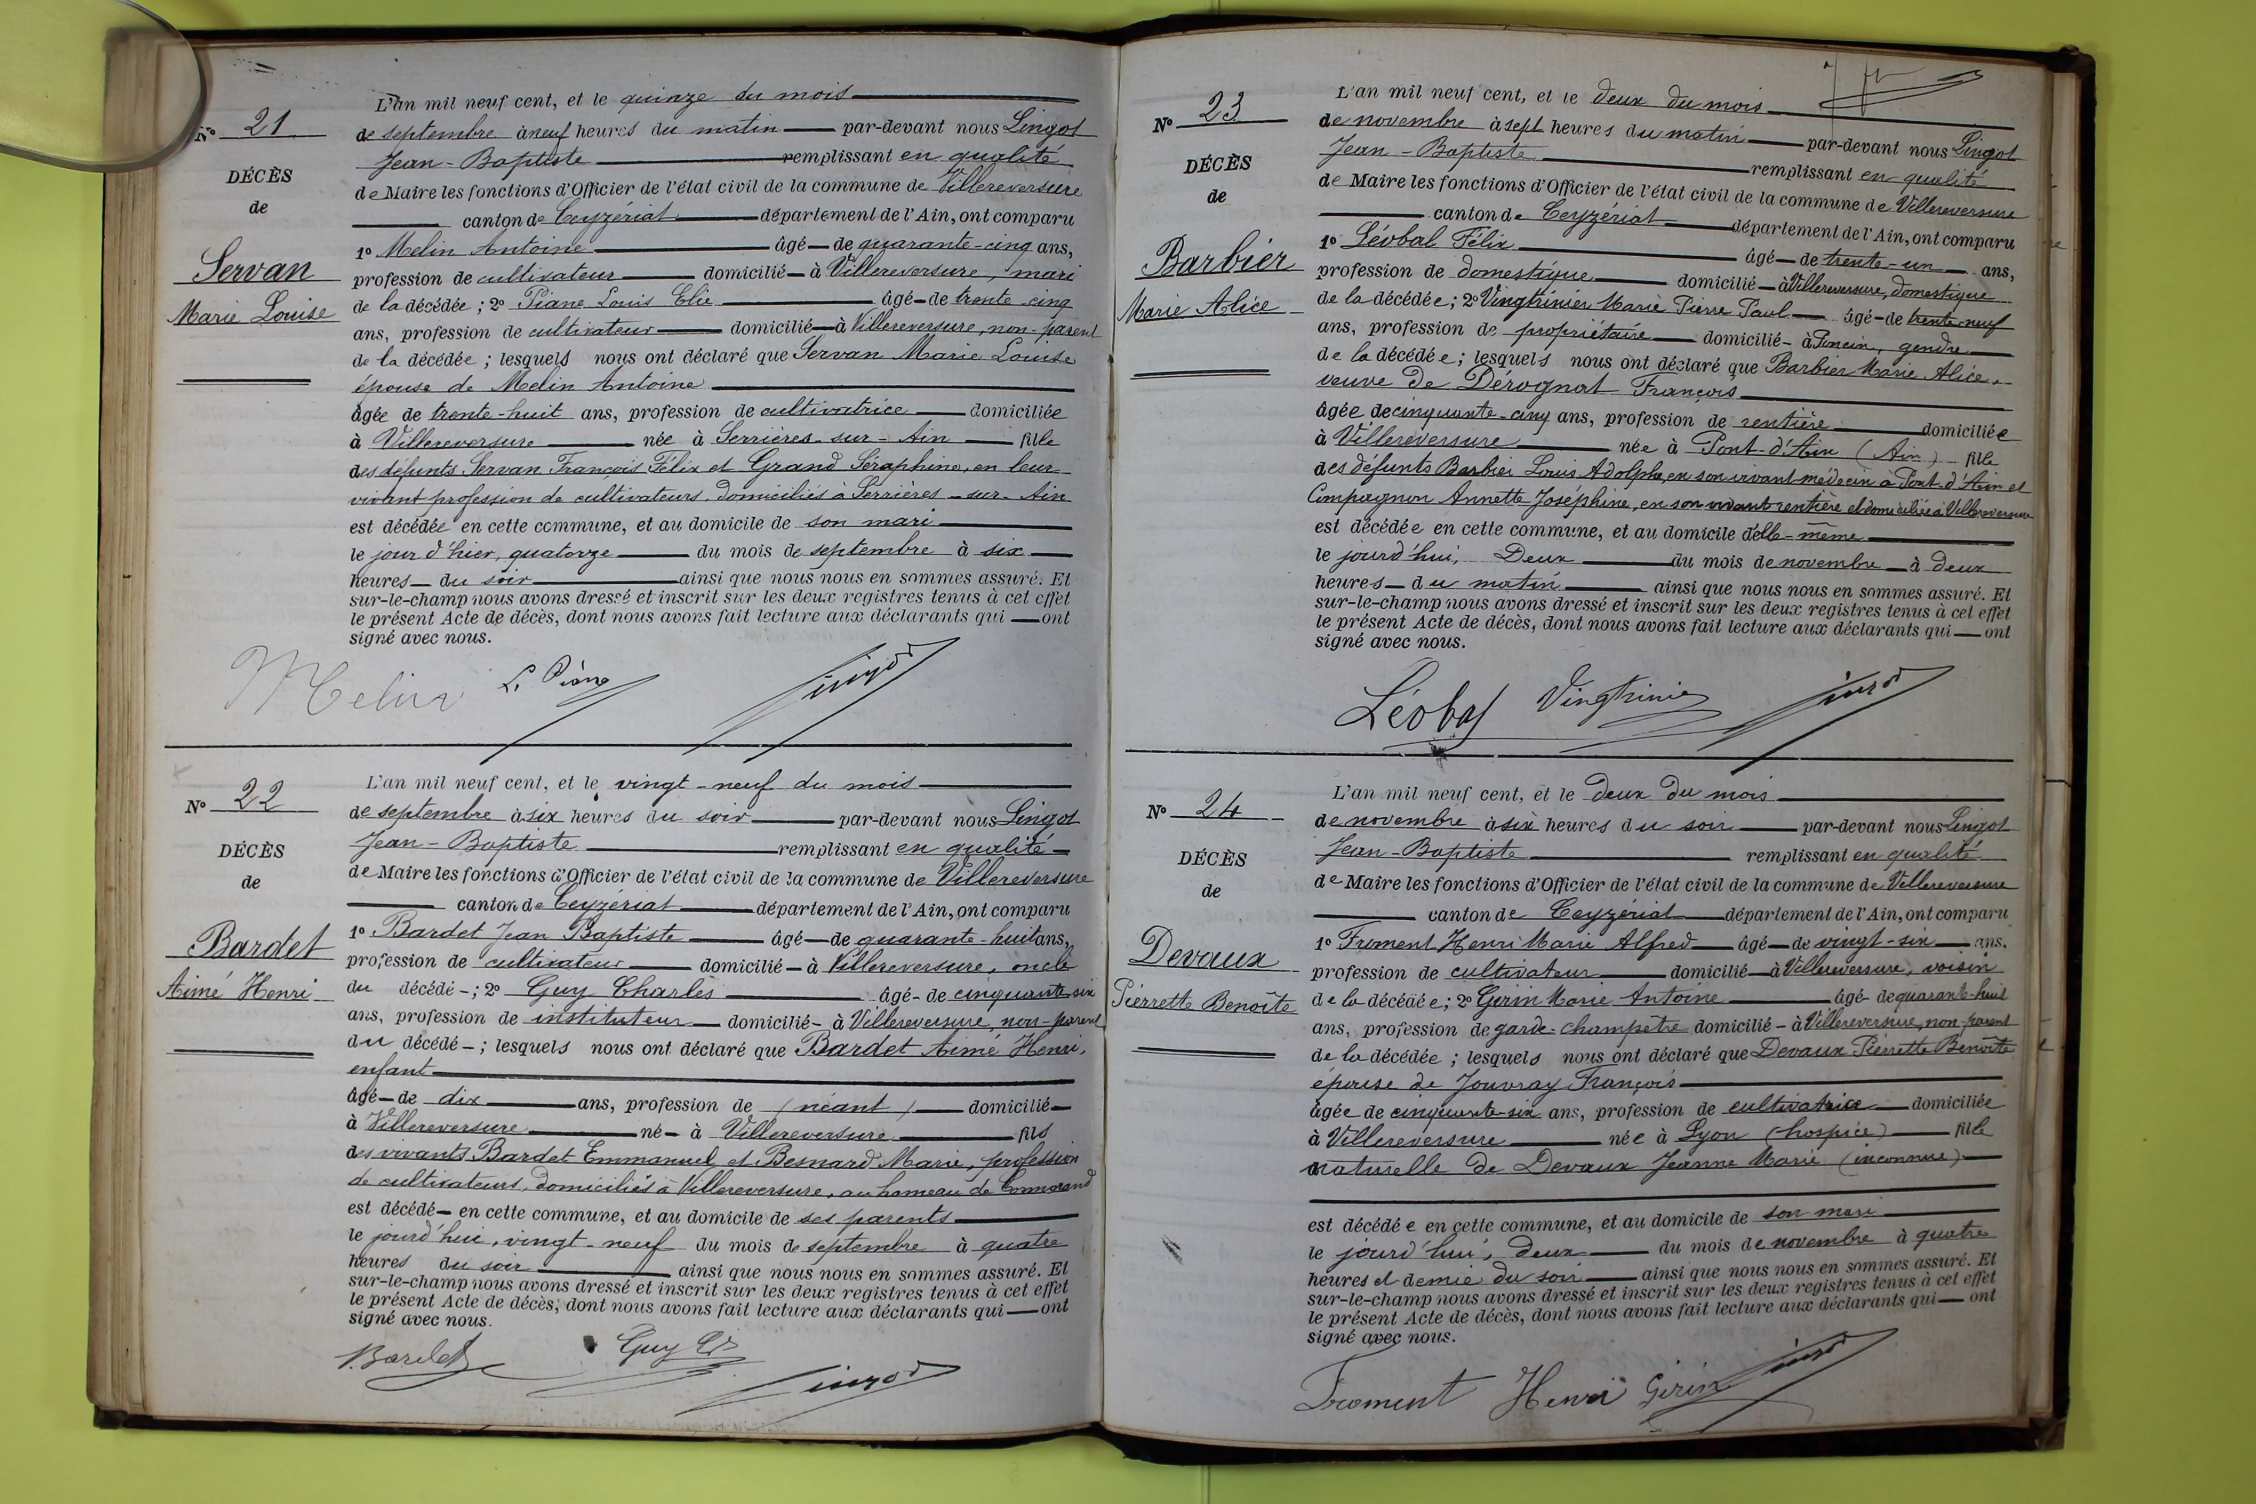 N° 21
DÉCÈS
de
Servan
Marie Louise
L'an mil neuf cent, et le quinze du mois
de septembre à neuf heures du matin par-devant nous Lingot
Jean-Baptiste remplissant en qualité
de Maire les fonctions d'Officier de l'état civil de la commune de Villereversure
canton de Ceyzériat département de l'Ain, ont comparu
1° Melin Antoine âgé de quarante-cinq ans,
profession de cultivateur domicilié à Villereversure, mari
de la décédée ; 2° Piane Louis Elie âgé de trente cinq
ans, profession de cultivateur domicilié à Villereversure, non-parent
de la décédée ; lesquels nous ont déclaré que Servan Marie Louise
épouse de Melin Antoine
âgée de trente-huit ans, profession de cultivatrice domiciliée
à Villereversure née à Serrières-sur-Ain fille
des défunts Servan François Félix et Grand Séraphine, en leur
vivant profession de cultivateurs, domiciliés à Serrières-sur-Ain
est décédée en cette commune, et au domicile de son mari
le jour d'hier, quatorze du mois de septembre à six
heures du soir ainsi que nous nous en sommes assuré. Et
sur-le-champ nous avons dressé et inscrit sur les deux registres tenus à cet effet
le présent Acte de décès, dont nous avons fait lecture aux déclarants qui ont
signé avec nous.
Melin L. Piane Lingot
N° 22
DÉCÈS
de
Bardet
Aimé Henri
L'an mil neuf cent, et le vingt-neuf du mois
de septembre à six heures du soir par-devant nous Lingot
Jean-Baptiste remplissant en qualité
de Maire les fonctions d'Officier de l'état civil de la commune de Villereversure
canton de Ceyzériat département de l'Ain, ont comparu
1° Bardet Jean Baptiste âgé de quarante-huit ans,
profession de cultivateur domicilié à Villereversure, oncle
du décédé ; 2° Guy Charles âgé de cinquante-six
ans, profession de instituteur domicilié à Villereversure, non-parent
du décédé ; lesquels nous ont déclaré que Bardet Aimé Henri,
enfant
âgé de dix ans, profession de (néant) domicilié
à Villereversure né à Villereversure fils
des vivants Bardet Emmanuel et Besnard Marie, profession
de cultivateurs, domiciliés à Villereversure, au hameau de Cormorand
est décédé en cette commune, et au domicile de ses parents
le jourd'hui, vingt-neuf du mois de septembre à quatre
heures du soir ainsi que nous nous en sommes assuré. Et
sur-le-champ nous avons dressé et inscrit sur les deux registres tenus à cet effet
le présent Acte de décès, dont nous avons fait lecture aux déclarants qui ont
signé avec nous.
Bardet Guy Lingot
N° 23
DÉCÈS
de
Barbier
Marie Alice
L'an mil neuf cent, et le deux du mois
de novembre à sept heures du matin par-devant nous Lingot
Jean-Baptiste remplissant en qualité
de Maire les fonctions d'Officier de l'état civil de la commune de Villereversure
canton de Ceyzériat département de l'Ain, ont comparu
1° Léobal Félix âgé de trente-un ans,
profession de domestique domicilié à Villereversure, domestique
de la décédée ; 2° Vingtrinier Marie Pierre Paul âgé de trente-neuf
ans, profession de propriétaire domicilié à Poncin, gendre
de la décédée ; lesquels nous ont déclaré que Barbier Marie Alice
veuve de Dérognat François
âgée de cinquante-cinq ans, profession de rentière domiciliée
à Villereversure née à Pont-d'Ain (Ain) fille
des défunts Barbier Louis Adolphe, en son vivant médecin à Pont-d'Ain et
Compagnon Annette Joséphine, en son vivant rentière et domiciliée à Villereversure
est décédée en cette commune, et au domicile d'elle-même
le jourd'hui, Deux du mois de novembre à deux
heures du matin ainsi que nous nous en sommes assuré. Et
sur-le-champ nous avons dressé et inscrit sur les deux registres tenus à cet effet
le présent Acte de décès, dont nous avons fait lecture aux déclarants qui ont
signé avec nous.
Léobal Vingtrinier Lingot
N° 24
DÉCÈS
de
Devaux
Pierrette Benoîte
L'an mil neuf cent, et le deux du mois
de novembre à six heures du soir par-devant nous Lingot
Jean-Baptiste remplissant en qualité
de Maire les fonctions d'Officier de l'état civil de la commune de Villereversure
canton de Ceyzériat département de l'Ain, ont comparu
1° Froment Henri Marie Alfred âgé de vingt-six ans,
profession de cultivateur domicilié à Villereversure, voisin
de la décédée ; 2° Girin Marie Antoine âgé de quarante-huit
ans, profession de garde-champêtre domicilié à Villereversure, non-parent
de la décédée ; lesquels nous ont déclaré que Devaux Pierrette Benoîte
épouse de Jouvray François
âgée de cinquante-six ans, profession de cultivatrice domiciliée
à Villereversure née à Lyon (hospice) fille
naturelle de Devaux Jeanne Marie (inconnue)
est décédée en cette commune, et au domicile de son mari
le jourd'hui, deux du mois de novembre à quatre
heures et demie du soir ainsi que nous nous en sommes assuré. Et
sur-le-champ nous avons dressé et inscrit sur les deux registres tenus à cet effet
le présent Acte de décès, dont nous avons fait lecture aux déclarants qui ont
signé avec nous.
Froment Henri Girin Lingot